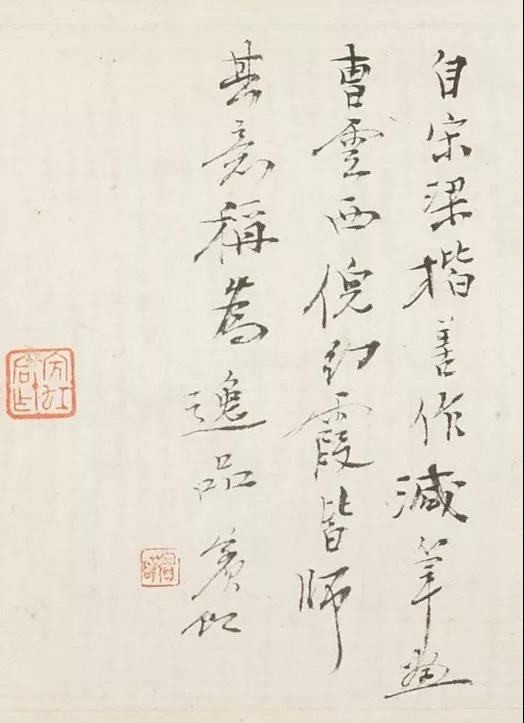 自宋梁楷善作減筆畫
曹雲西倪幻霞皆師
其意稱為逸品賓虹